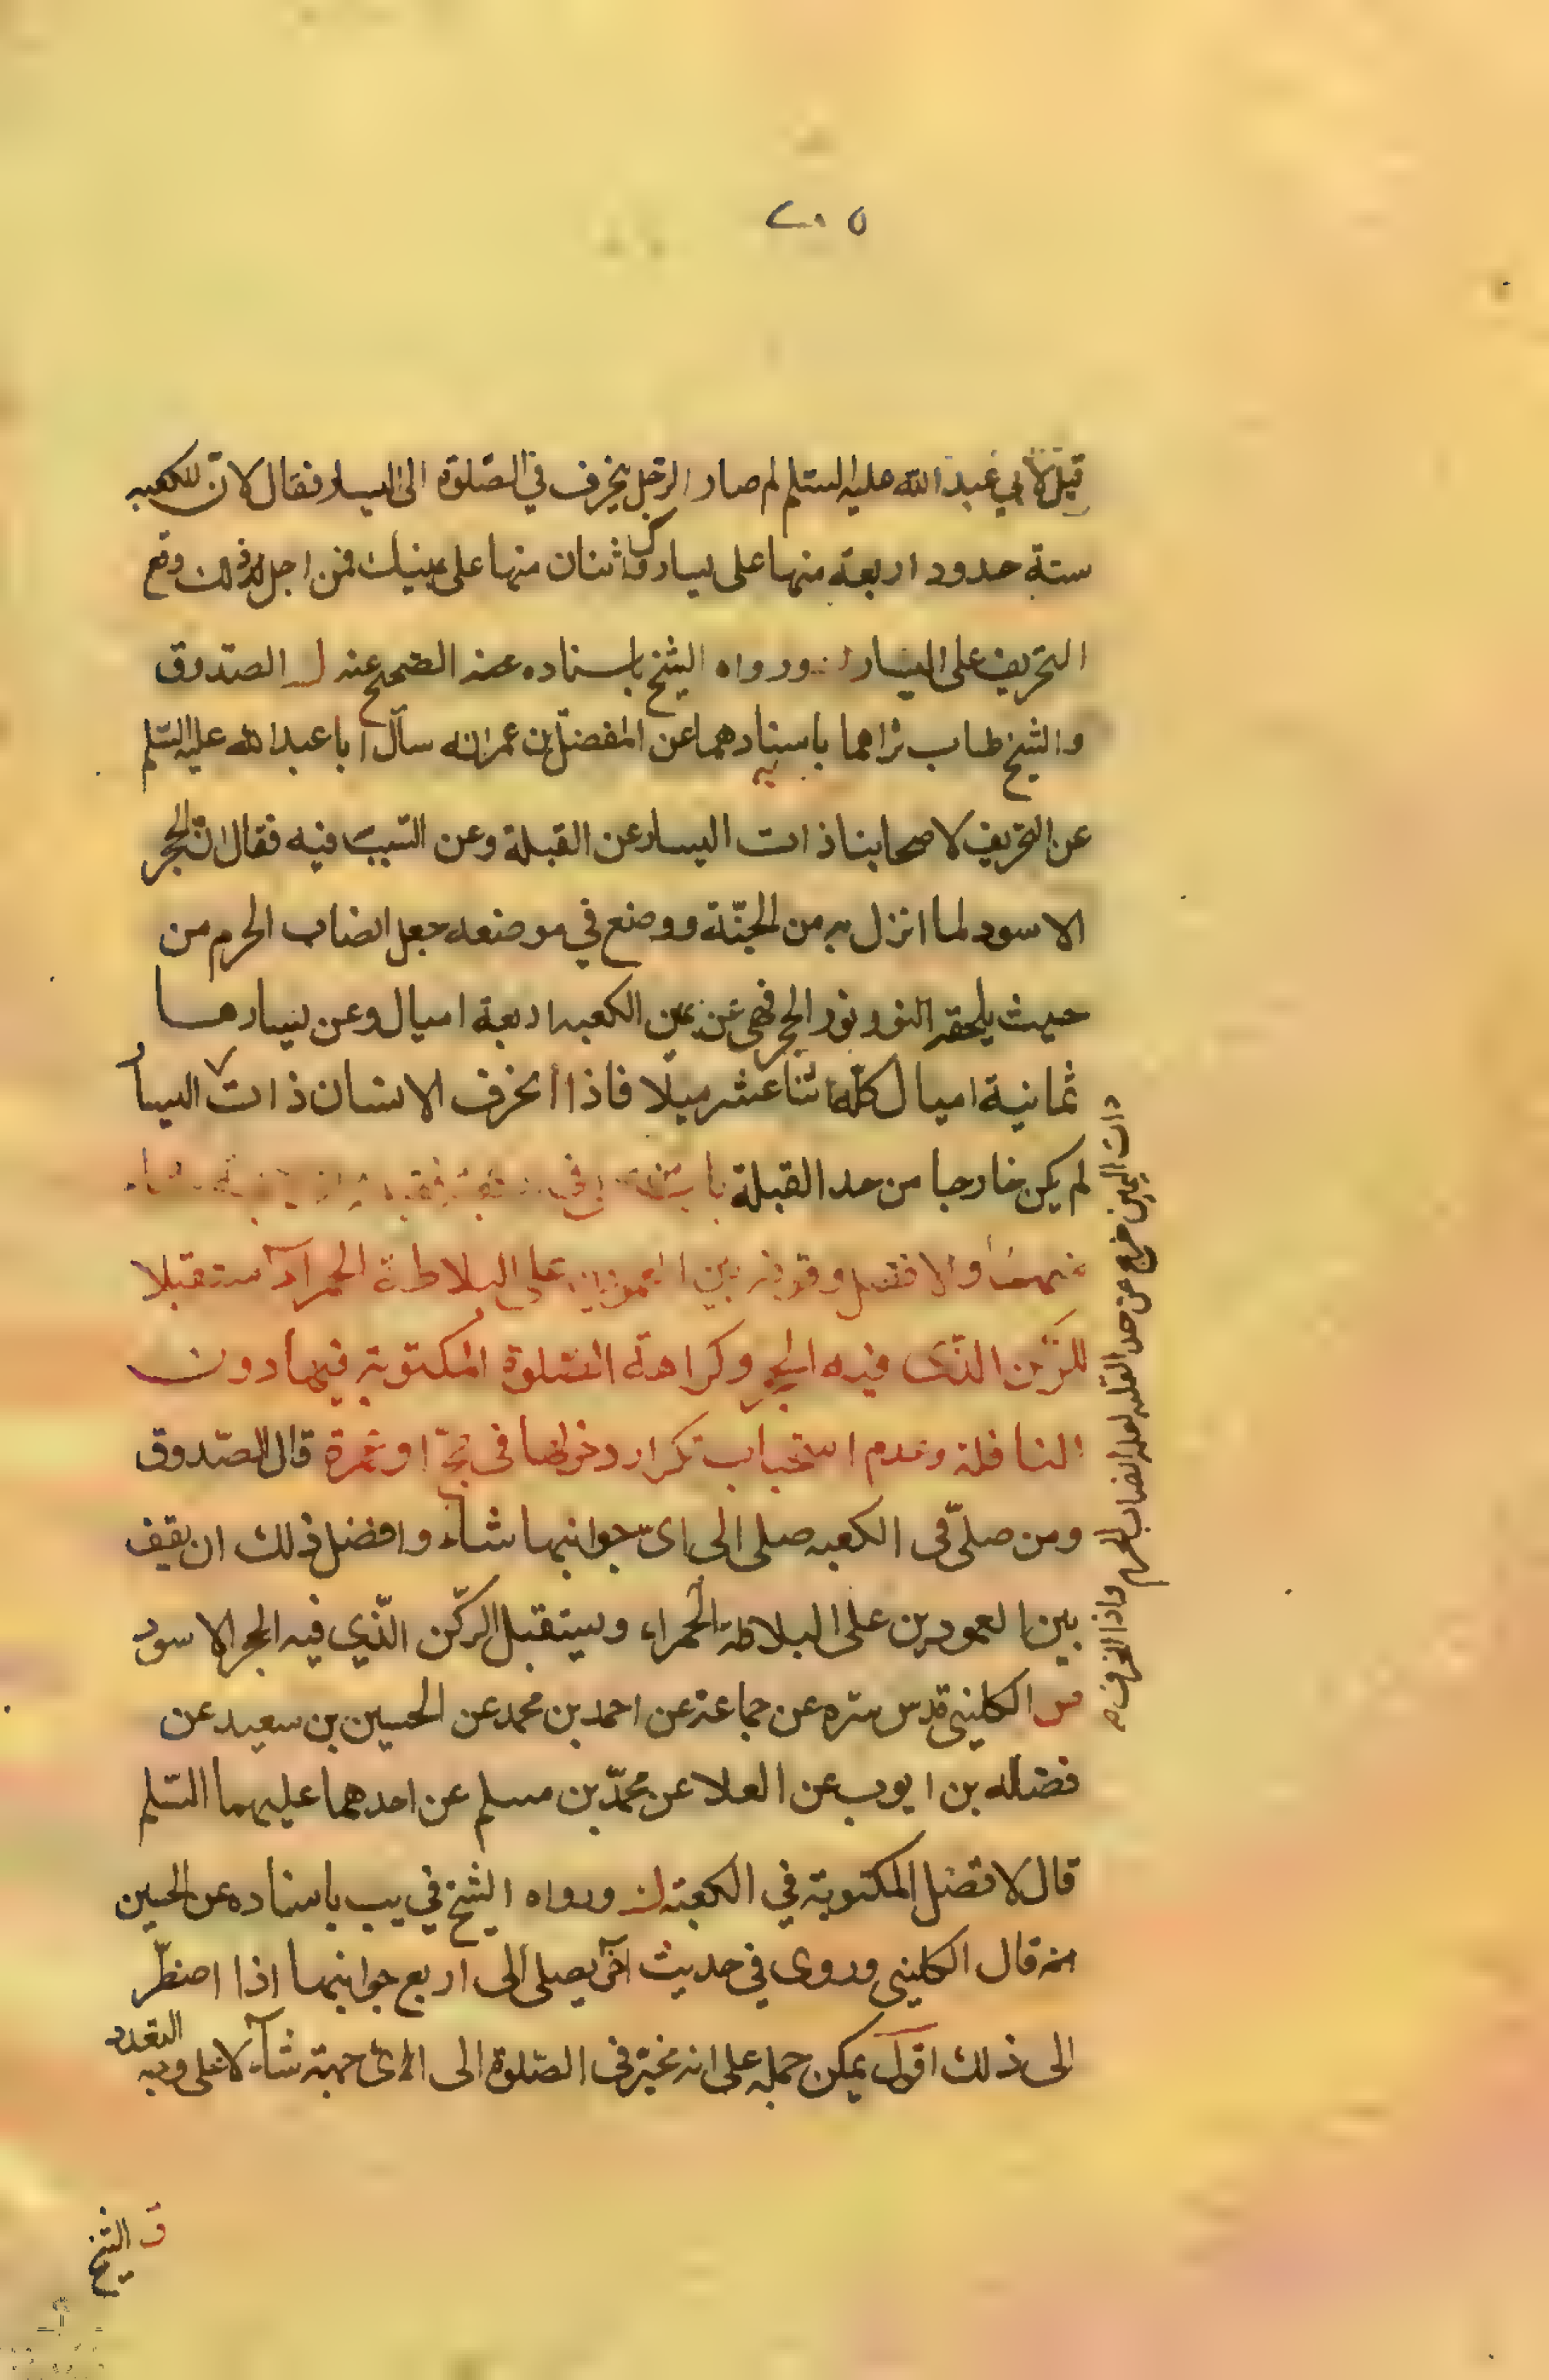 ٢٠٥
قيل لأبي عبد الله عليه السّلم لم صار الرّجل ينحرف في الصّلوة الى اليسار فقال لانّ للكعبه
ستة حدود اربعة منها على يسارك واثنان منها على يمينك فمن اجل ذلك وقع
التحريف على اليسار ورواه الشيخ باسناده عنه الصدوق
والشيخ طاب ثراهما باسنادهما عن المفضل بن عمر انه سأل ابا عبد الله عليه السّلم
عن التحريف لاصحابنا ذات اليسار عن القبلة وعن السّبب فيه فقال انّ الحجر
الاسود لما انزل به من الجنّة ووضع في موضعه جعل انصاب الحرم من
حيث يلحقه النور نور الحجر فهي عن يمين الكعبه اربعة اميال وعن يسارها
ثمانية اميال كلّه اثنا عشر ميلا فاذا انحرف الانسان ذات اليسار
لم يكن خارجا من حد القبلة
والافضل وقوفه بين العمودين على البلاطة الحمرآء مستقبلا
للرّكن الذّى فيه الحجر وكراهة الصّلوة المكتوبة فيها دون
النافلة وعدم استحباب تكرار دخولها فى حجّ او عمرة قال الصّدوق
ومن صلّى فى الكعبه صلى الى اىّ جوانبها شاء وافضل ذلك ان يقف
بين العمودين على البلاطة الحمراء ويستقبل الرّكن الّذي فيه الحجر الاسود
الكليني قدس سره عن جماعة عن احمد بن محمد عن الحسين بن سعيد عن
فضاله بن ايوب عن العلا عن محمّد بن مسلم عن احدهما عليهما السّلم
قال لا تصل المكتوبة في الكعبة ورواه الشيخ في يب باسناده عن الحسين
قال الكليني وروى في حديث آخر يصلى الى اربع جوانبها اذا اضطرّ
الى ذلك اقول يمكن حمله على انه مخيّر فى الصّلوة الى اىّ جهة شآء لا على وجه التعدد
واذا انحرف ذات اليمين خرج من حد القبلة لعلة انصاب الحرم
الشيخ